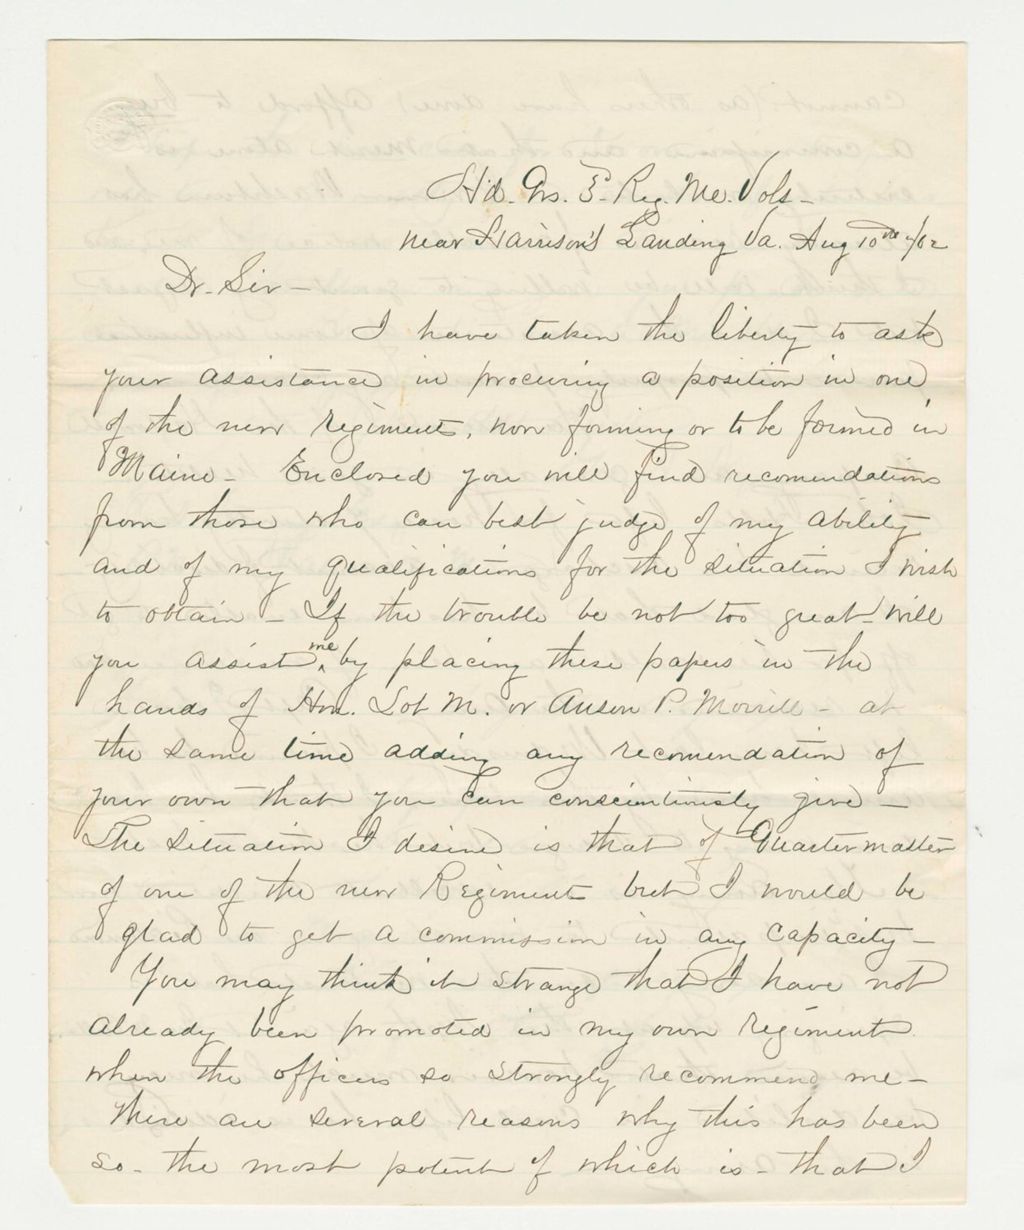 Hd. Qrs. 3d. Reg. Me. Vols -
near Harrison's Landing Va. Aug 10th /62
Dr. Sir -
I have taken the liberty to ask
your assistance in procuring a position in one
of the new regiments, now forming or to be formed in
Maine - Enclosed you will find recomendations
from those who can best judge of my ability
and of my qualifications for the situation I wish
to obtain - If the trouble be not too great will
you assist me by placing these papers in the
hands of Hon. Lot M. or Anson P. Morrill - at
the same time adding any recomendation of
your own that you can conscientiously give -
The situation I desire is that of Quartermaster
of one of the new Regiments but I would be
glad to get a commission in any capacity -
You may think it strange that I have not
already been promoted in my own regiment
when the officers so strongly recommend me -
There are several reasons why this has been
so - the most potent of which is - that I